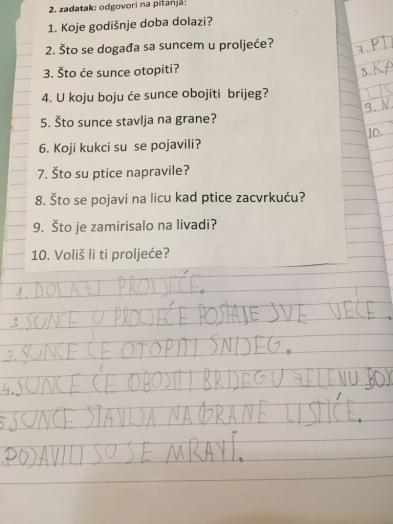 2. zadatak: odgovori na pitanja:
1. Koje godišnje doba dolazi?
2. Što se događa sa suncem u proljeće?
3. Što će sunce otopiti?
4. U koju boju će sunce obojiti brijeg?
5. Što sunce stavlja na grane?
6. Koji kukci su se pojavili?
7. Što su ptice napravile?
8. Što se pojavi na licu kad ptice zacvrkuću?
9. Što je zamirisalo na livadi?
10. Voliš li ti proljeće?
7. PTI
8. KA
9. N
10.
1. DOLAZI PROLJEĆE.
2. SUNCE U PROLJEĆE POSTAJE SVE VEĆE.
3. SUNCE ĆE OTOPITI SNIJEG.
4. SUNCE ĆE OBOJITI BRIJEG U ZELENU BOJ
5. SUNCE STAVLJA NA GRANE LISTIĆE.
POJAVILI SU SE MRAVI.